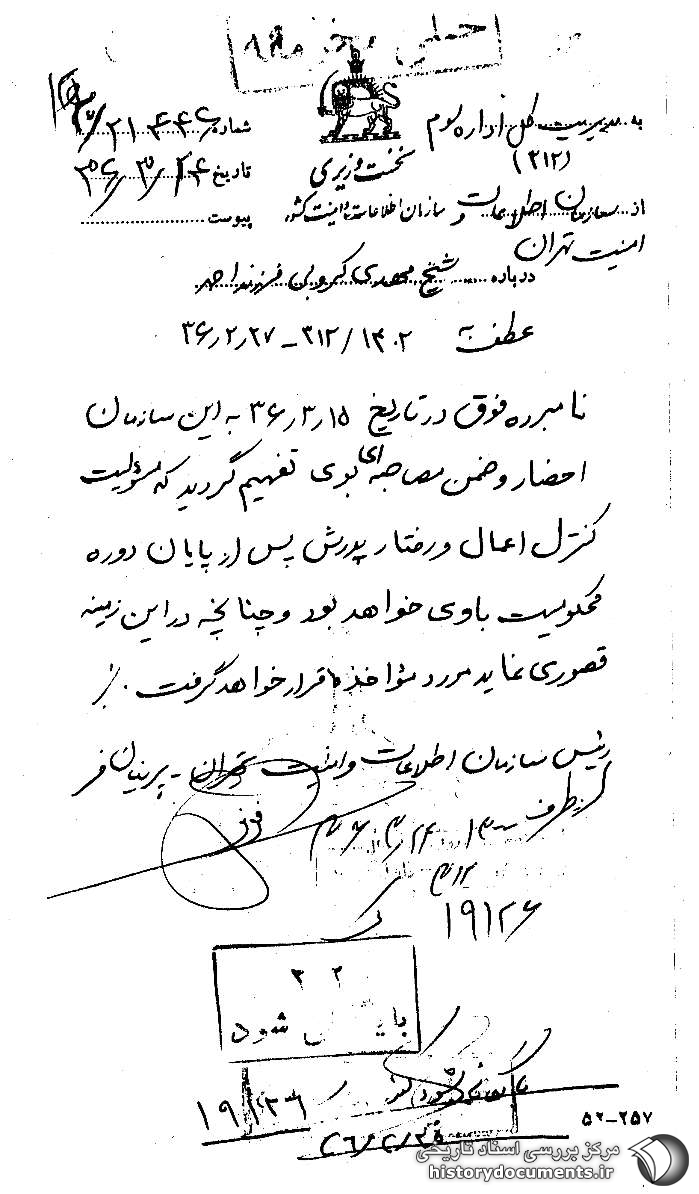 خیلی محرمانه
به مدیریت کل اداره سوم
(۳۱۲)
شماره
تاریخ
پیوست
نخست وزیری
سازمان اطلاعات و امنیت کشور
از سازمان اطلاعات و
امنیت تهران
درباره شیخ مهدی کروبی فرزند احمد
عطف به ۳۱۲/۱۴۰۲ - ۳۶٫۲٫۲۷
نامبرده فوق در تاریخ ۳۶٫۳٫۱۵ به این سازمان
احضار و ضمن مصاحبه‌ای بوی تفهیم گردید که مسؤلیت
کنترل اعمال و رفتار پدرش پس از پایان دوره
محکومیت باوی خواهد بود و چنانچه در این زمینه
قصوری نماید مورد مؤاخذه قرار خواهد گرفت.
رئیس سازمان اطلاعات و امنیت تهران - پرنیان فر
از طرف
۳۱۲
۱۹۱۲۶
شود
۵۲-۲۵۷
مرکز بررسی اسناد تاریخی
historydocuments.ir